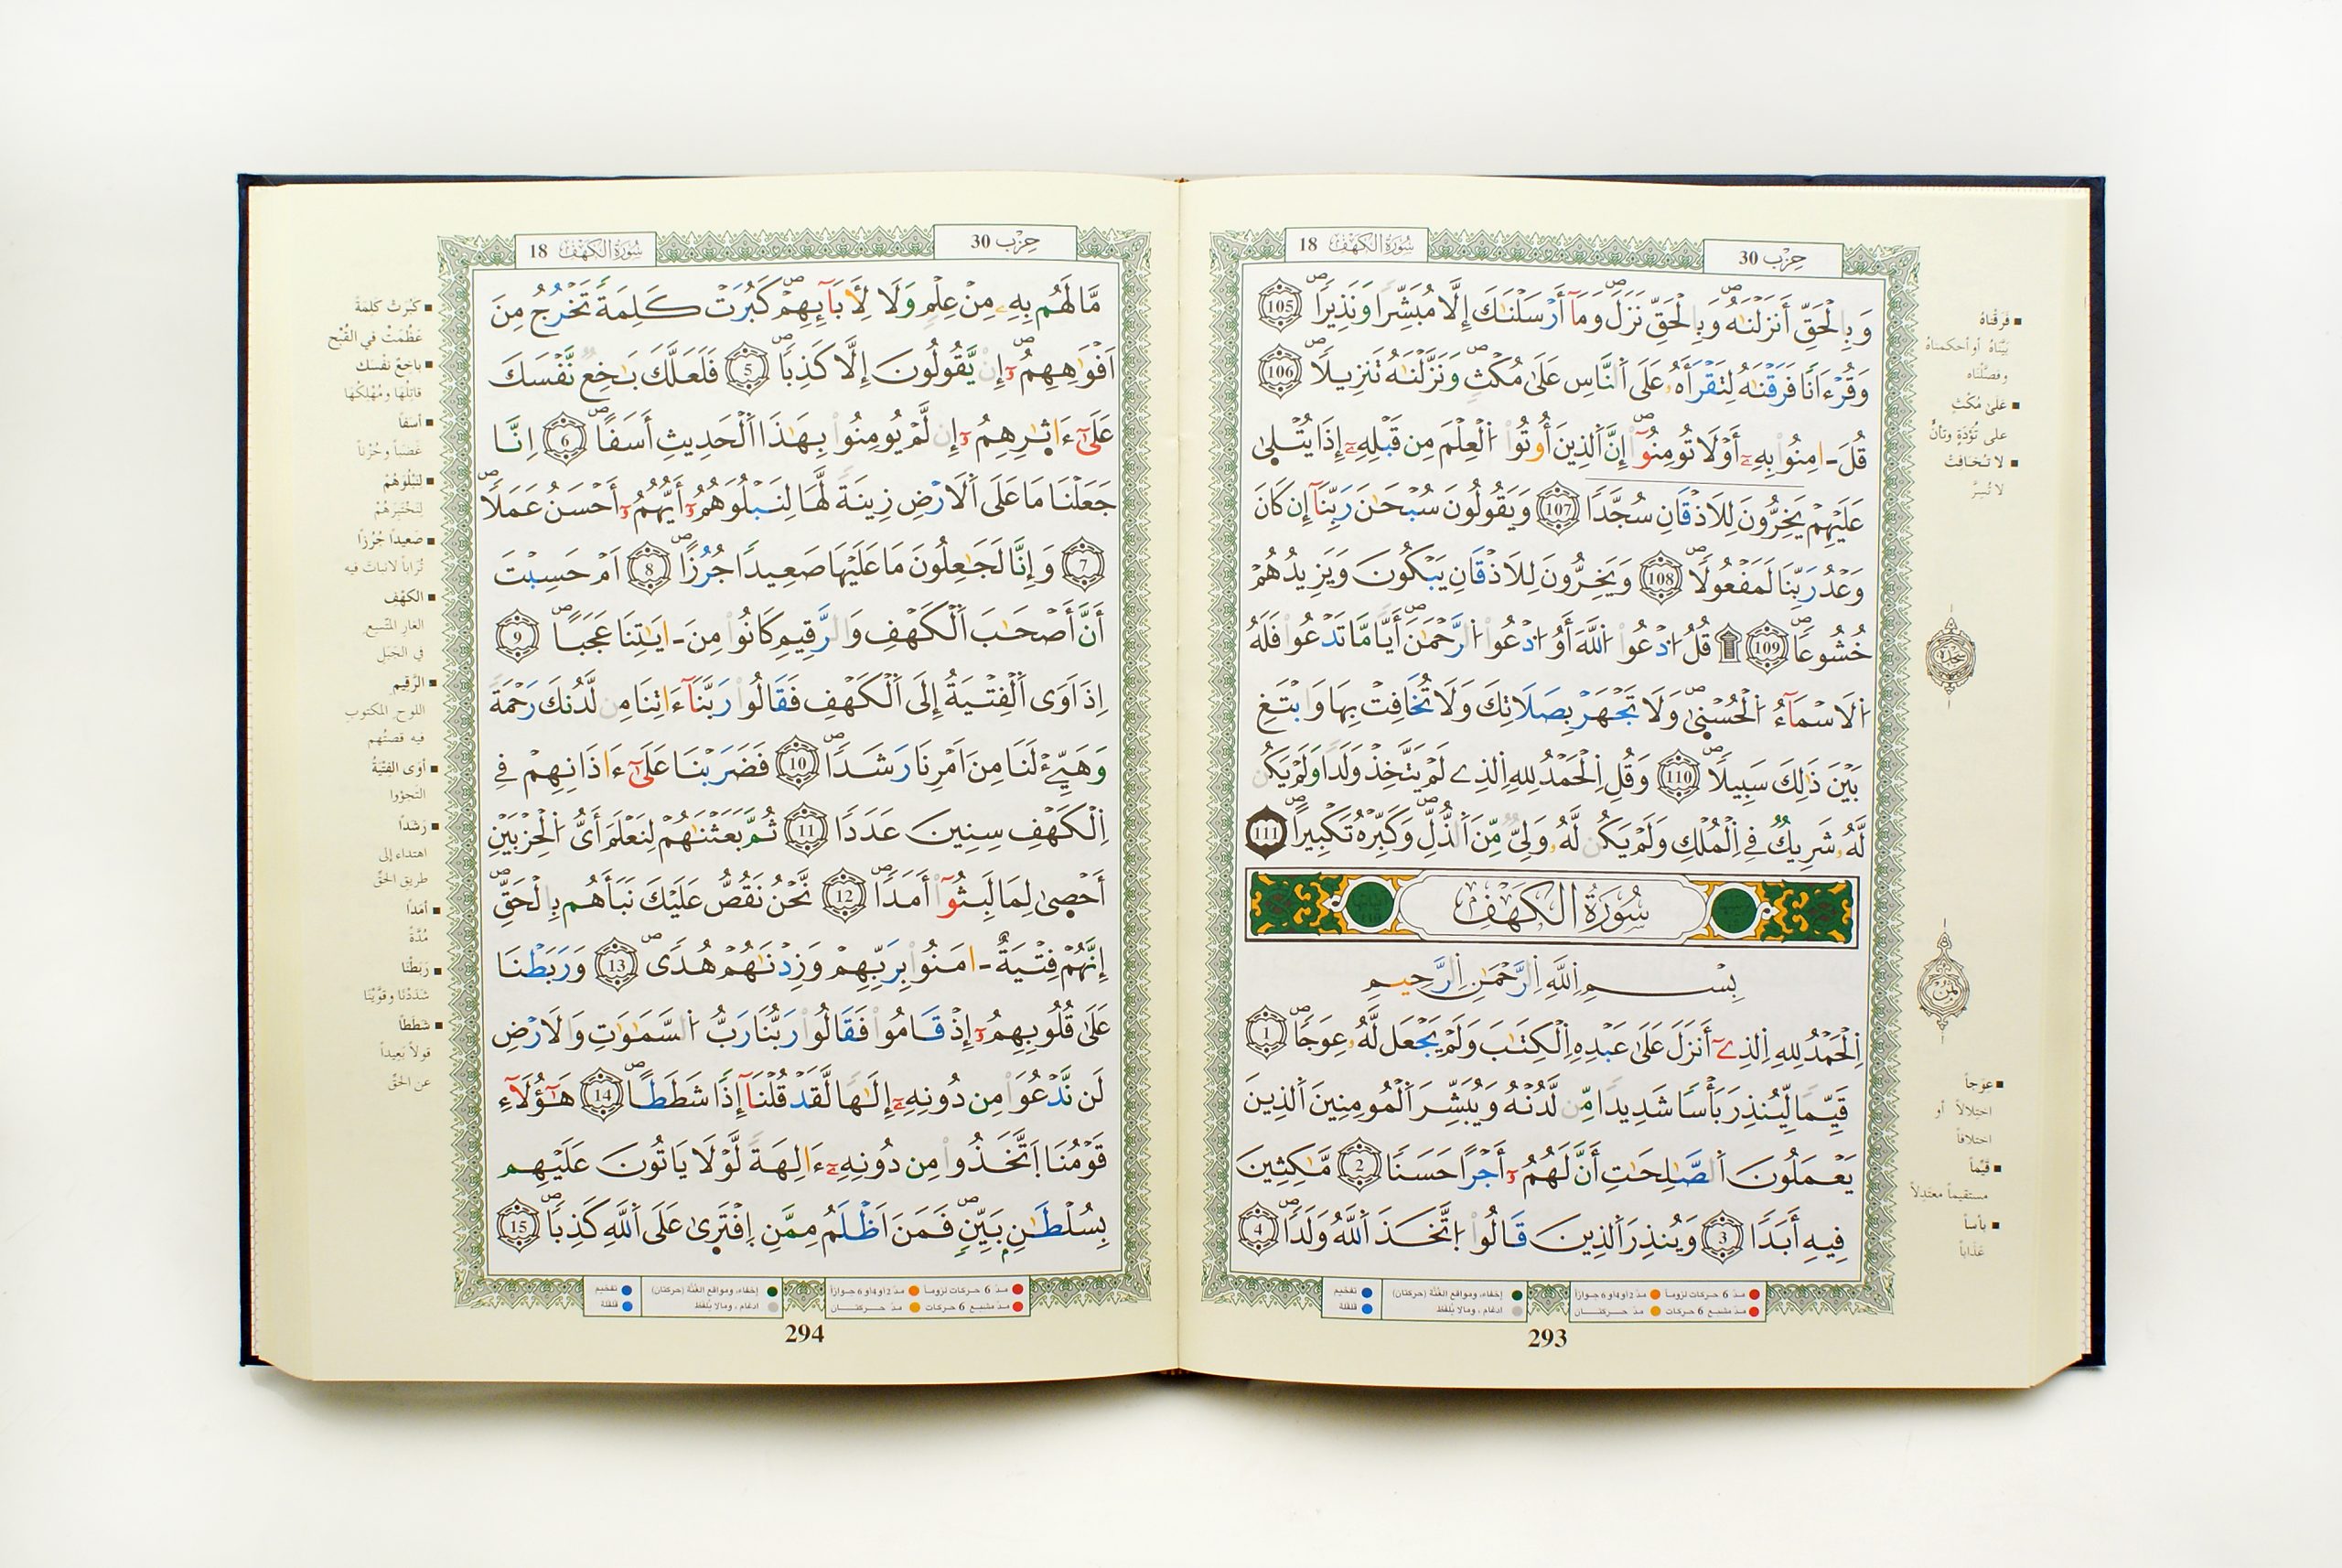 حِزْب 30
سُورَةُ الكَهْف 18
وَبِالْحَقِّ أَنزَلْنَٰهُ وَبِالْحَقِّ نَزَلَ وَمَآ أَرْسَلْنَٰكَ إِلَّا مُبَشِّرًا وَنَذِيرًا 105
وَقُرْءَانًا فَرَقْنَٰهُ لِتَقْرَأَهُۥ عَلَى اَلنَّاسِ عَلَىٰ مُكْثٍ وَنَزَّلْنَٰهُ تَنزِيلًا 106
قُلَ اٰمِنُوا بِهِۦٓ أَوْ لَا تُومِنُوٓا إِنَّ اَلذِينَ أُوتُوا اُلْعِلْمَ مِن قَبْلِهِۦٓ إِذَا يُتْلَىٰ
عَلَيْهِمْ يَخِرُّونَ لِلَاذْقَانِ سُجَّدًا 107 وَيَقُولُونَ سُبْحَٰنَ رَبِّنَآ إِن كَانَ
وَعْدُ رَبِّنَا لَمَفْعُولًا 108 وَيَخِرُّونَ لِلَاذْقَانِ يَبْكُونَ وَيَزِيدُهُمْ
خُشُوعًا 109 ۞ قُلُ اُدْعُوا اُللَّهَ أَوُ اُدْعُوا اُلرَّحْمَٰنَ أَيًّا مَّا تَدْعُوا فَلَهُ
اُلَاسْمَآءُ اُلْحُسْنَىٰ وَلَا تَجْهَرْ بِصَلَاتِكَ وَلَا تُخَافِتْ بِهَا وَابْتَغِ
بَيْنَ ذَٰلِكَ سَبِيلًا 110 وَقُلِ اِلْحَمْدُ لِلهِ اِلذِے لَمْ يَتَّخِذْ وَلَدًا وَلَمْ يَكُن
لَّهُۥ شَرِيكٌ فِے اِلْمُلْكِ وَلَمْ يَكُن لَّهُۥ وَلِيٌّ مِّنَ اَلذُّلِّ وَكَبِّرْهُ تَكْبِيرًا 111
سُورَةُ الكَهْف
بِسْمِ اِللَّهِ اِلرَّحْمَٰنِ اِلرَّحِيمِ
اِلْحَمْدُ لِلهِ اِلذِےٓ أَنزَلَ عَلَىٰ عَبْدِهِ اِلْكِتَٰبَ وَلَمْ يَجْعَل لَّهُۥ عِوَجًا 1
قَيِّمًا لِّيُنذِرَ بَأْسًا شَدِيدًا مِّن لَّدُنْهُ وَيُبَشِّرَ اَلْمُومِنِينَ اَلذِينَ
يَعْمَلُونَ اَلصَّٰلِحَٰتِ أَنَّ لَهُمُۥٓ أَجْرًا حَسَنًا 2 مَّٰكِثِينَ
فِيهِ أَبَدًا 3 وَيُنذِرَ اَلذِينَ قَالُوا اُتَّخَذَ اَللَّهُ وَلَدًا 4
■ فَرَقْنَاهُ
بَيَّنَاهُ أو أحكمناهُ
وفصَّلْنَاه
■ عَلَىٰ مُكْثٍ
على تُؤَدَةٍ وتأنٍّ
■ لا تُخَافِتْ
لا تُسِرَّ
سجدة
ثمن
■ عِوَجاً
اختلالاً أو
اختلافاً
■ قَيِّماً
مستقيماً معتدلاً
■ بأساً
عَذَاباً
مدّ 6 حركات لزوماً مدّ 2 أو 4 أو 6 جوازاً
مدّ مشبع 6 حركات مدّ حركتان
إخفاء، ومواقع الغُنَّة (حركتان)
إدغام ، ومالا يُلفَظ
تفخيم
قلقلة
293
حِزْب 30
سُورَةُ الكَهْف 18
مَّا لَهُم بِهِۦ مِنْ عِلْمٍ وَلَا لِأَبَآئِهِمْ كَبُرَتْ كَلِمَةً تَخْرُجُ مِنَ
اَفْوَٰهِهِمُۥٓ إِنْ يَّقُولُونَ إِلَّا كَذِبًا 5 فَلَعَلَّكَ بَٰخِعٌ نَّفْسَكَ
عَلَىٰٓ ءَاثَٰرِهِمُۥٓ إِن لَّمْ يُومِنُوا بِهَٰذَا اَلْحَدِيثِ أَسَفًا 6 اِنَّا
جَعَلْنَا مَا عَلَى اَلَارْضِ زِينَةً لَّهَا لِنَبْلُوَهُمُۥٓ أَيُّهُمُۥٓ أَحْسَنُ عَمَلًا
7 وَإِنَّا لَجَٰعِلُونَ مَا عَلَيْهَا صَعِيدًا جُرُزًا 8 اَمْ حَسِبْتَ
أَنَّ أَصْحَٰبَ اَلْكَهْفِ وَالرَّقِيمِ كَانُوا مِنَ اٰيَٰتِنَا عَجَبًا 9
إِذَ اَوَى اَلْفِتْيَةُ إِلَى اَلْكَهْفِ فَقَالُوا رَبَّنَآ ءَاتِنَا مِن لَّدُنكَ رَحْمَةً
وَهَيِّےْ لَنَا مِنَ اَمْرِنَا رَشَدًا 10 فَضَرَبْنَا عَلَىٰٓ ءَاذَانِهِمْ فِے
اِلْكَهْفِ سِنِينَ عَدَدًا 11 ثُمَّ بَعَثْنَٰهُمْ لِنَعْلَمَ أَيُّ اُلْحِزْبَيْنِ
أَحْصَىٰ لِمَا لَبِثُوٓا أَمَدًا 12 نَّحْنُ نَقُصُّ عَلَيْكَ نَبَأَهُم بِالْحَقِّ
إِنَّهُمْ فِتْيَةٌ اٰمَنُوا بِرَبِّهِمْ وَزِدْنَٰهُمْ هُدًى 13 وَرَبَطْنَا
عَلَىٰ قُلُوبِهِمُۥٓ إِذْ قَامُوا فَقَالُوا رَبُّنَا رَبُّ اُلسَّمَٰوَٰتِ وَالَارْضِ
لَن نَّدْعُوَا مِن دُونِهِۦٓ إِلَٰهًا لَّقَدْ قُلْنَآ إِذًا شَطَطًا 14 هَٰٓؤُلَآءِ
قَوْمُنَا اَتَّخَذُوا مِن دُونِهِۦٓ ءَالِهَةً لَّوْلَا يَاتُونَ عَلَيْهِم
بِسُلْطَٰنٍ بَيِّنٍ فَمَنَ اَظْلَمُ مِمَّنِ اِفْتَرَىٰ عَلَى اَللَّهِ كَذِبًا 15
■ كَبُرَتْ كَلِمَةً
عَظُمَتْ في القُبْح
■ باخِعٌ نَفْسَك
قاتِلُهَا ومُهْلِكُهَا
■ أسَفاً
غَضَباً وحُزْناً
■ لِنَبْلُوَهُمْ
لِنَخْتَبِرَهُمْ
■ صَعِيداً جُرُزاً
تُرَاباً لا نباتَ فيه
■ الكَهْفِ
الغَارِ المتَّسِعِ
في الجَبَلِ
■ الرَّقِيم
اللوحِ المكتوبِ
فيه قصتُهم
■ أوَى الفِتْيَةُ
التَجَؤوا
■ رَشَداً
اهتداء إلى
طريق الحَقِّ
■ أمَداً
مُدَّةً
■ رَبَطْنَا
شَدَدْنَا وقَوَّيْنَا
■ شَطَطاً
قولاً بَعِيداً
عن الحَقِّ
مدّ 6 حركات لزوماً مدّ 2 أو 4 أو 6 جوازاً
مدّ مشبع 6 حركات مدّ حركتان
إخفاء، ومواقع الغُنَّة (حركتان)
إدغام ، ومالا يُلفَظ
تفخيم
قلقلة
294